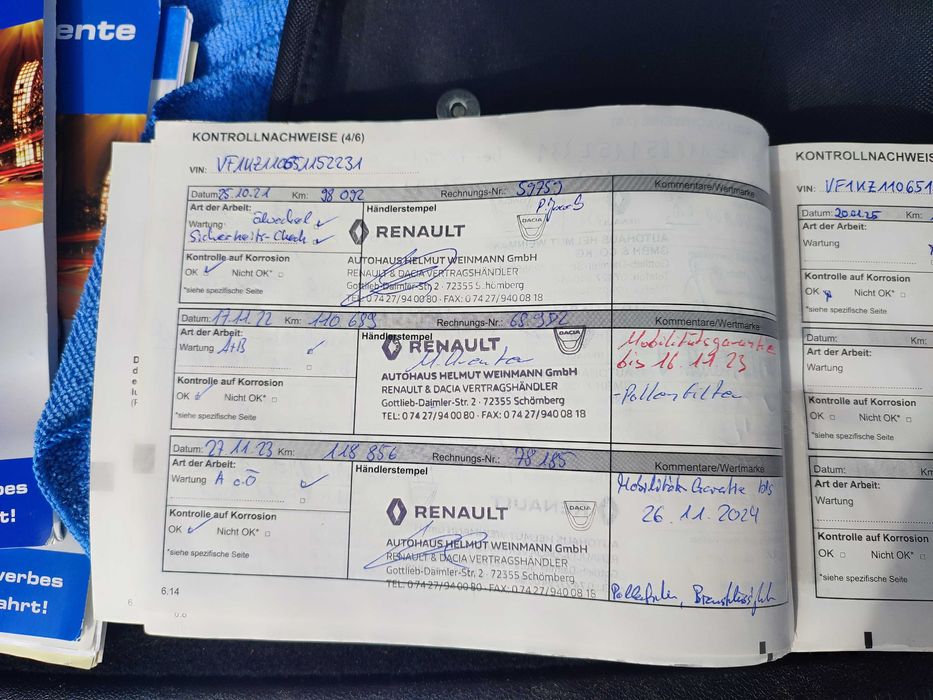 ente
KONTROLLNACHWEISE (4/6)
VIN: VF1KZ110651152231
Datum: 25.10.21 Km: 98 092 Rechnungs-Nr.: 59759 Kommentare/Wertmarke
Art der Arbeit: Händlerstempel
Wartung Ölwechsel
Sicherheits-Check
RENAULT
DACIA
Kontrolle auf Korrosion
OK Nicht OK*
*siehe spezifische Seite
AUTOHAUS HELMUT WEINMANN GmbH
RENAULT & DACIA VERTRAGSHÄNDLER
Gottlieb-Daimler-Str. 2 · 72355 Schömberg
TEL: 0 74 27/94 00 80 · FAX: 0 74 27/940 08 18
Datum: 17.11.22 Km: 110 689 Rechnungs-Nr.: Kommentare/Wertmarke
Art der Arbeit: Händlerstempel
Wartung A+B
RENAULT
DACIA
Kontrolle auf Korrosion
OK Nicht OK*
*siehe spezifische Seite
AUTOHAUS HELMUT WEINMANN GmbH
RENAULT & DACIA VERTRAGSHÄNDLER
Gottlieb-Daimler-Str. 2 · 72355 Schömberg
TEL: 0 74 27/940 0 80 · FAX: 0 74 27/940 08 18
Mobilitätsgarantie
bis 16.11.23
-Pollenfilter
Datum: 27.11.23 Km: 118 856 Rechnungs-Nr.: 78 185 Kommentare/Wertmarke
Art der Arbeit: Händlerstempel
Wartung A
RENAULT
DACIA
Kontrolle auf Korrosion
OK Nicht OK*
*siehe spezifische Seite
AUTOHAUS HELMUT WEINMANN GmbH
RENAULT & DACIA VERTRAGSHÄNDLER
Gottlieb-Daimler-Str. 2 · 72355 Schömberg
TEL: 0 74 27/94 00 80 · FAX: 0 74 27/940 08 18
Mobilitäts Garantie bis
26.11.2024
Pollenfilter, Bremsflüssigkeit
6.14
KONTROLLNACHWEIS
VIN: VF1KZ110651
Datum: 20.01.25 Km:
Art der Arbeit:
Wartung
Kontrolle auf Korrosion
OK Nicht OK*
*siehe spezifische Seite
Datum: Km:
Art der Arbeit:
Wartung
Kontrolle auf Korrosion
OK Nicht OK*
*siehe spezifische Seite
Datum: Km:
Art der Arbeit:
Wartung
Kontrolle auf Korrosion
OK Nicht OK*
*siehe spezifische Seite
bes
t!
werbes
ahrt!